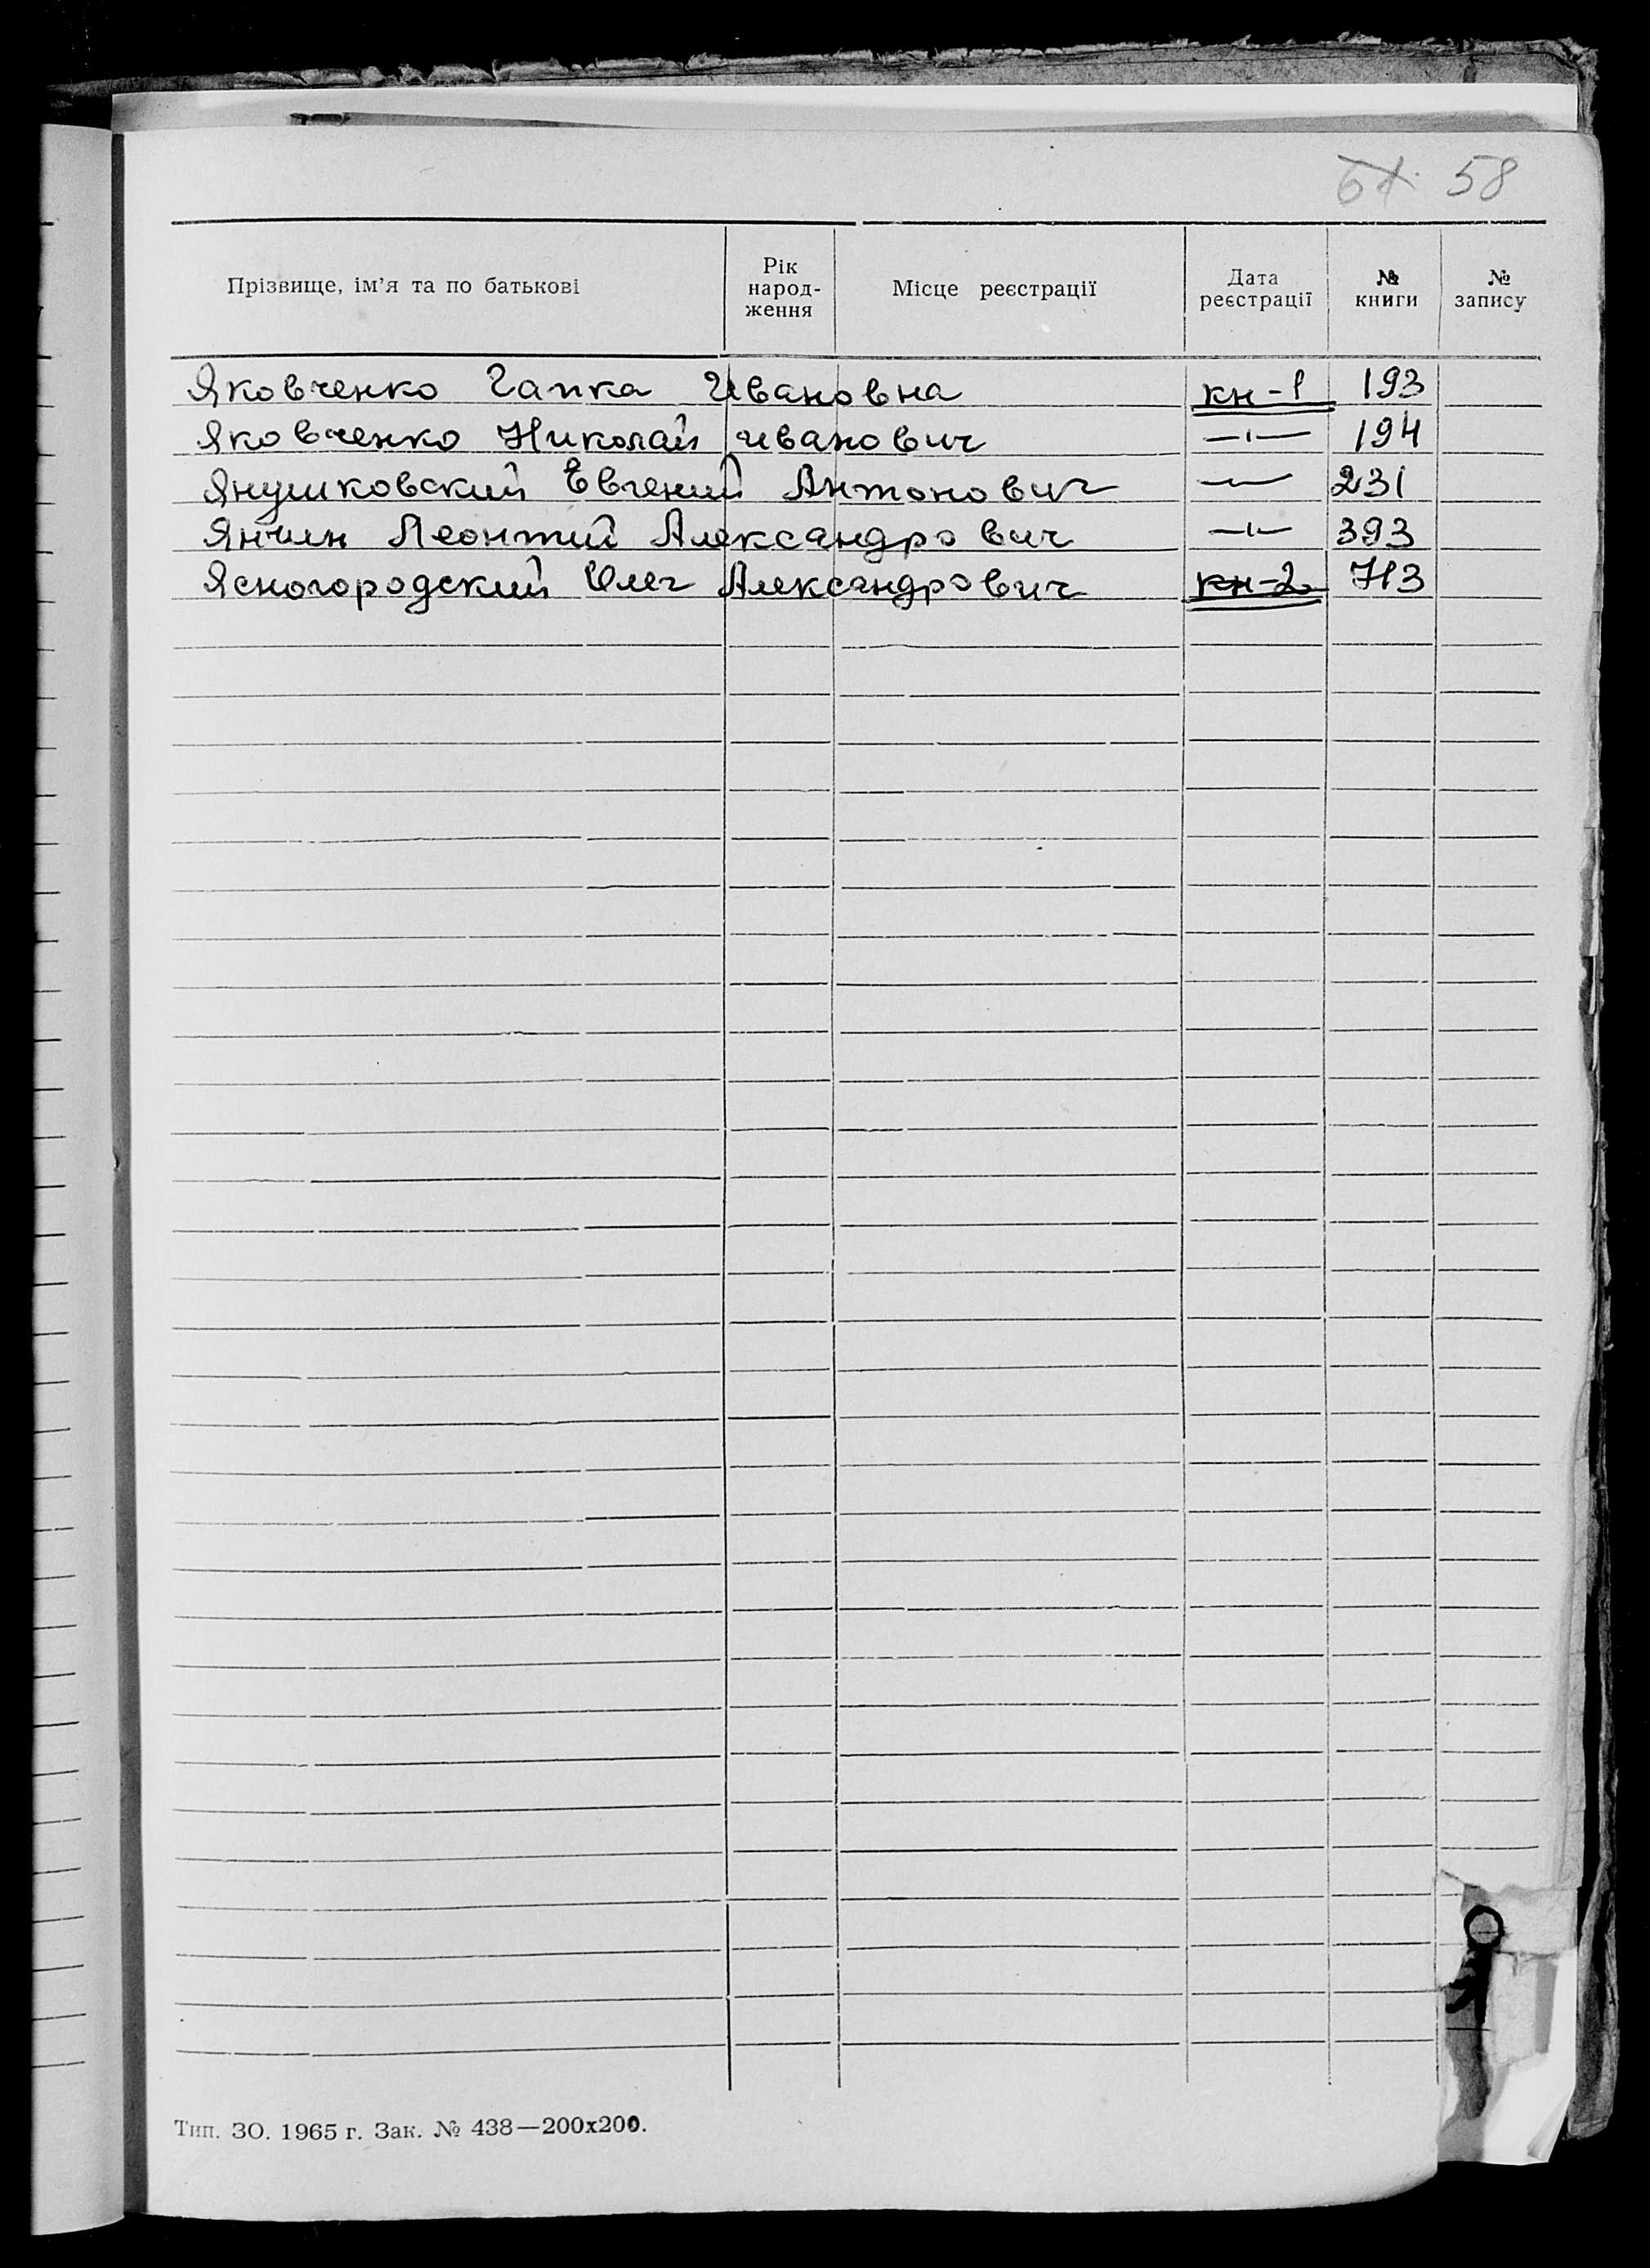 58
Прізвище, ім'я та по батькові Рік народ- ження Місце реєстрації Дата реєстрації № книги № запису
Яковченко Гапка Ивановна кн-1 193
Яковченко Николай иванович —ı— 194
Янушковский Евгений Антонович — 231
Янчин Леонтий Александрович —ı— 393
Ясногородский Олег Александрович кн-2 713
Тип. ЗО. 1965 г. Зак. № 438—200х200.